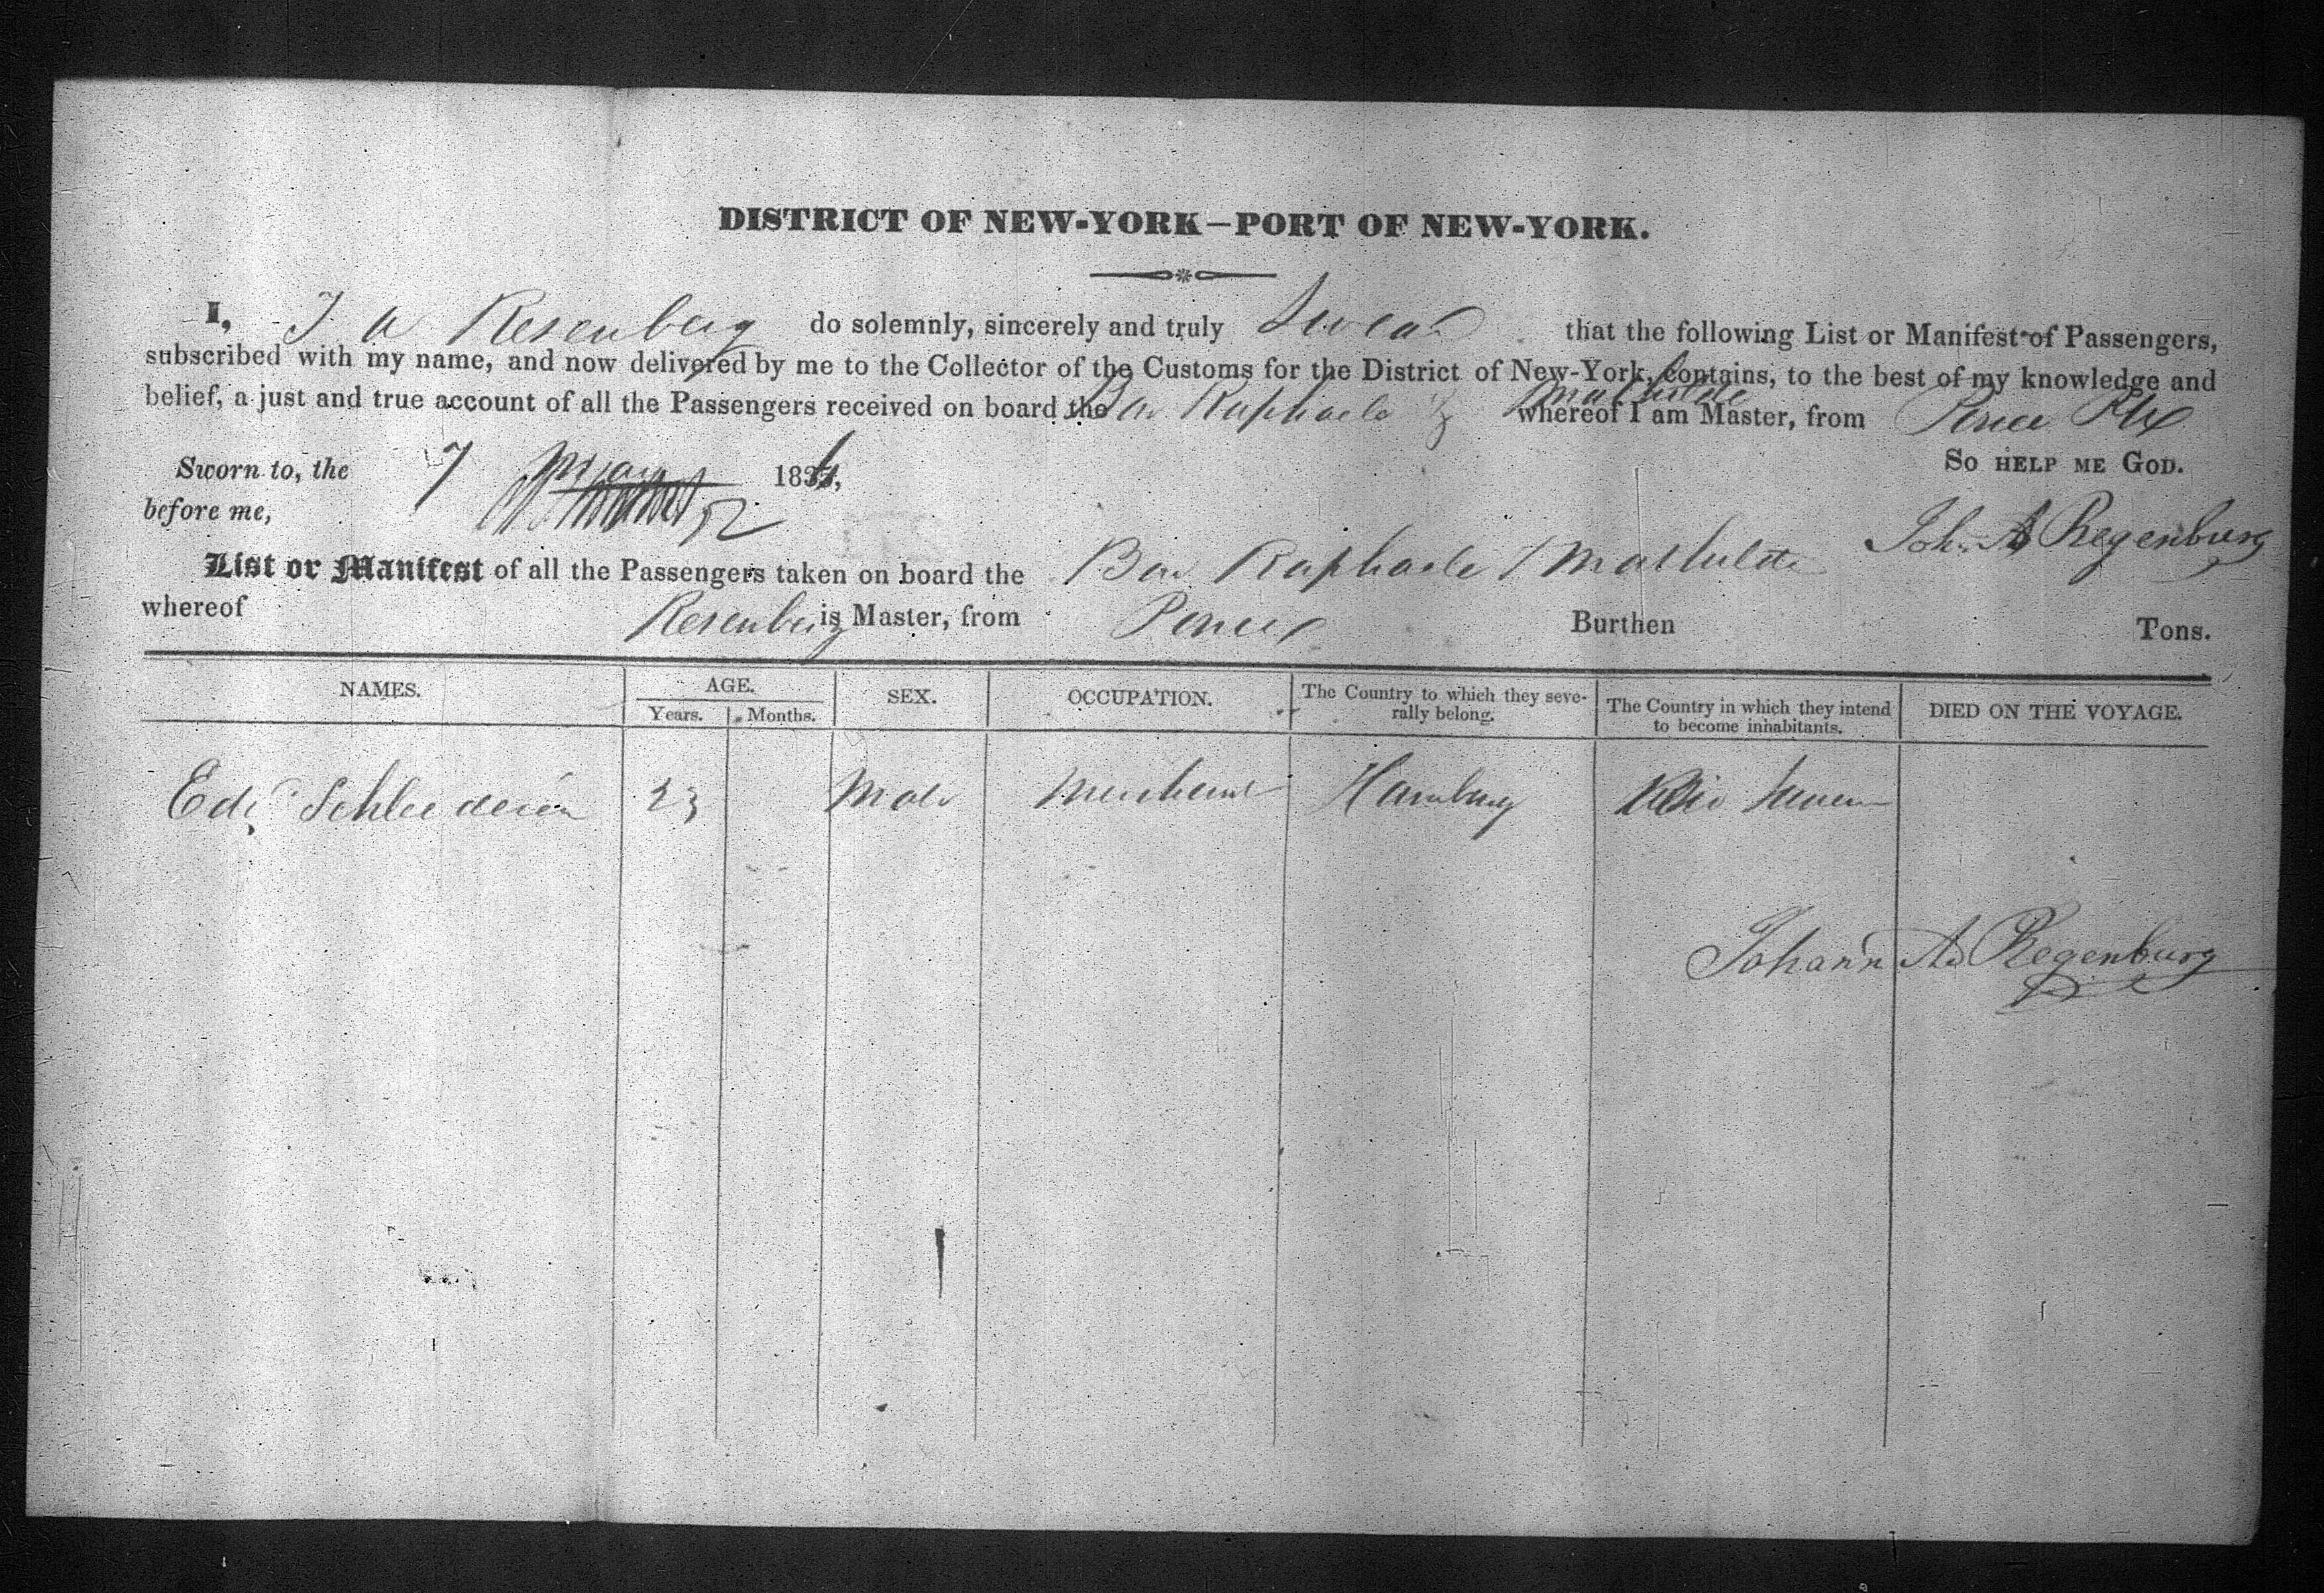 DISTRICT OF NEW-YORK—PORT OF NEW-YORK.
I, J A Resenberg do solemnly, sincerely and truly Swear that the following List or Manifest of Passengers,
subscribed with my name, and now delivered by me to the Collector of the Customs for the District of New-York, contains, to the best of my knowledge and
belief, a just and true account of all the Passengers received on board the Bar Raphaele & Mathilde whereof I am Master, from Ponce
Sworn to, the 7 May 183 So HELP ME GOD.
before me,
Joh. A Regenburg
List or Manifest of all the Passengers taken on board the Bar Raphaele Mathilde
whereof Resenberg is Master, from Ponce Burthen Tons.
NAMES. AGE. SEX. OCCUPATION. The Country to which they seve-rally belong. The Country in which they intend to become inhabitants. DIED ON THE VOYAGE.
Years. Months.
Edd 23 Male Merchant Hamburg
Johann Ad Regenburg